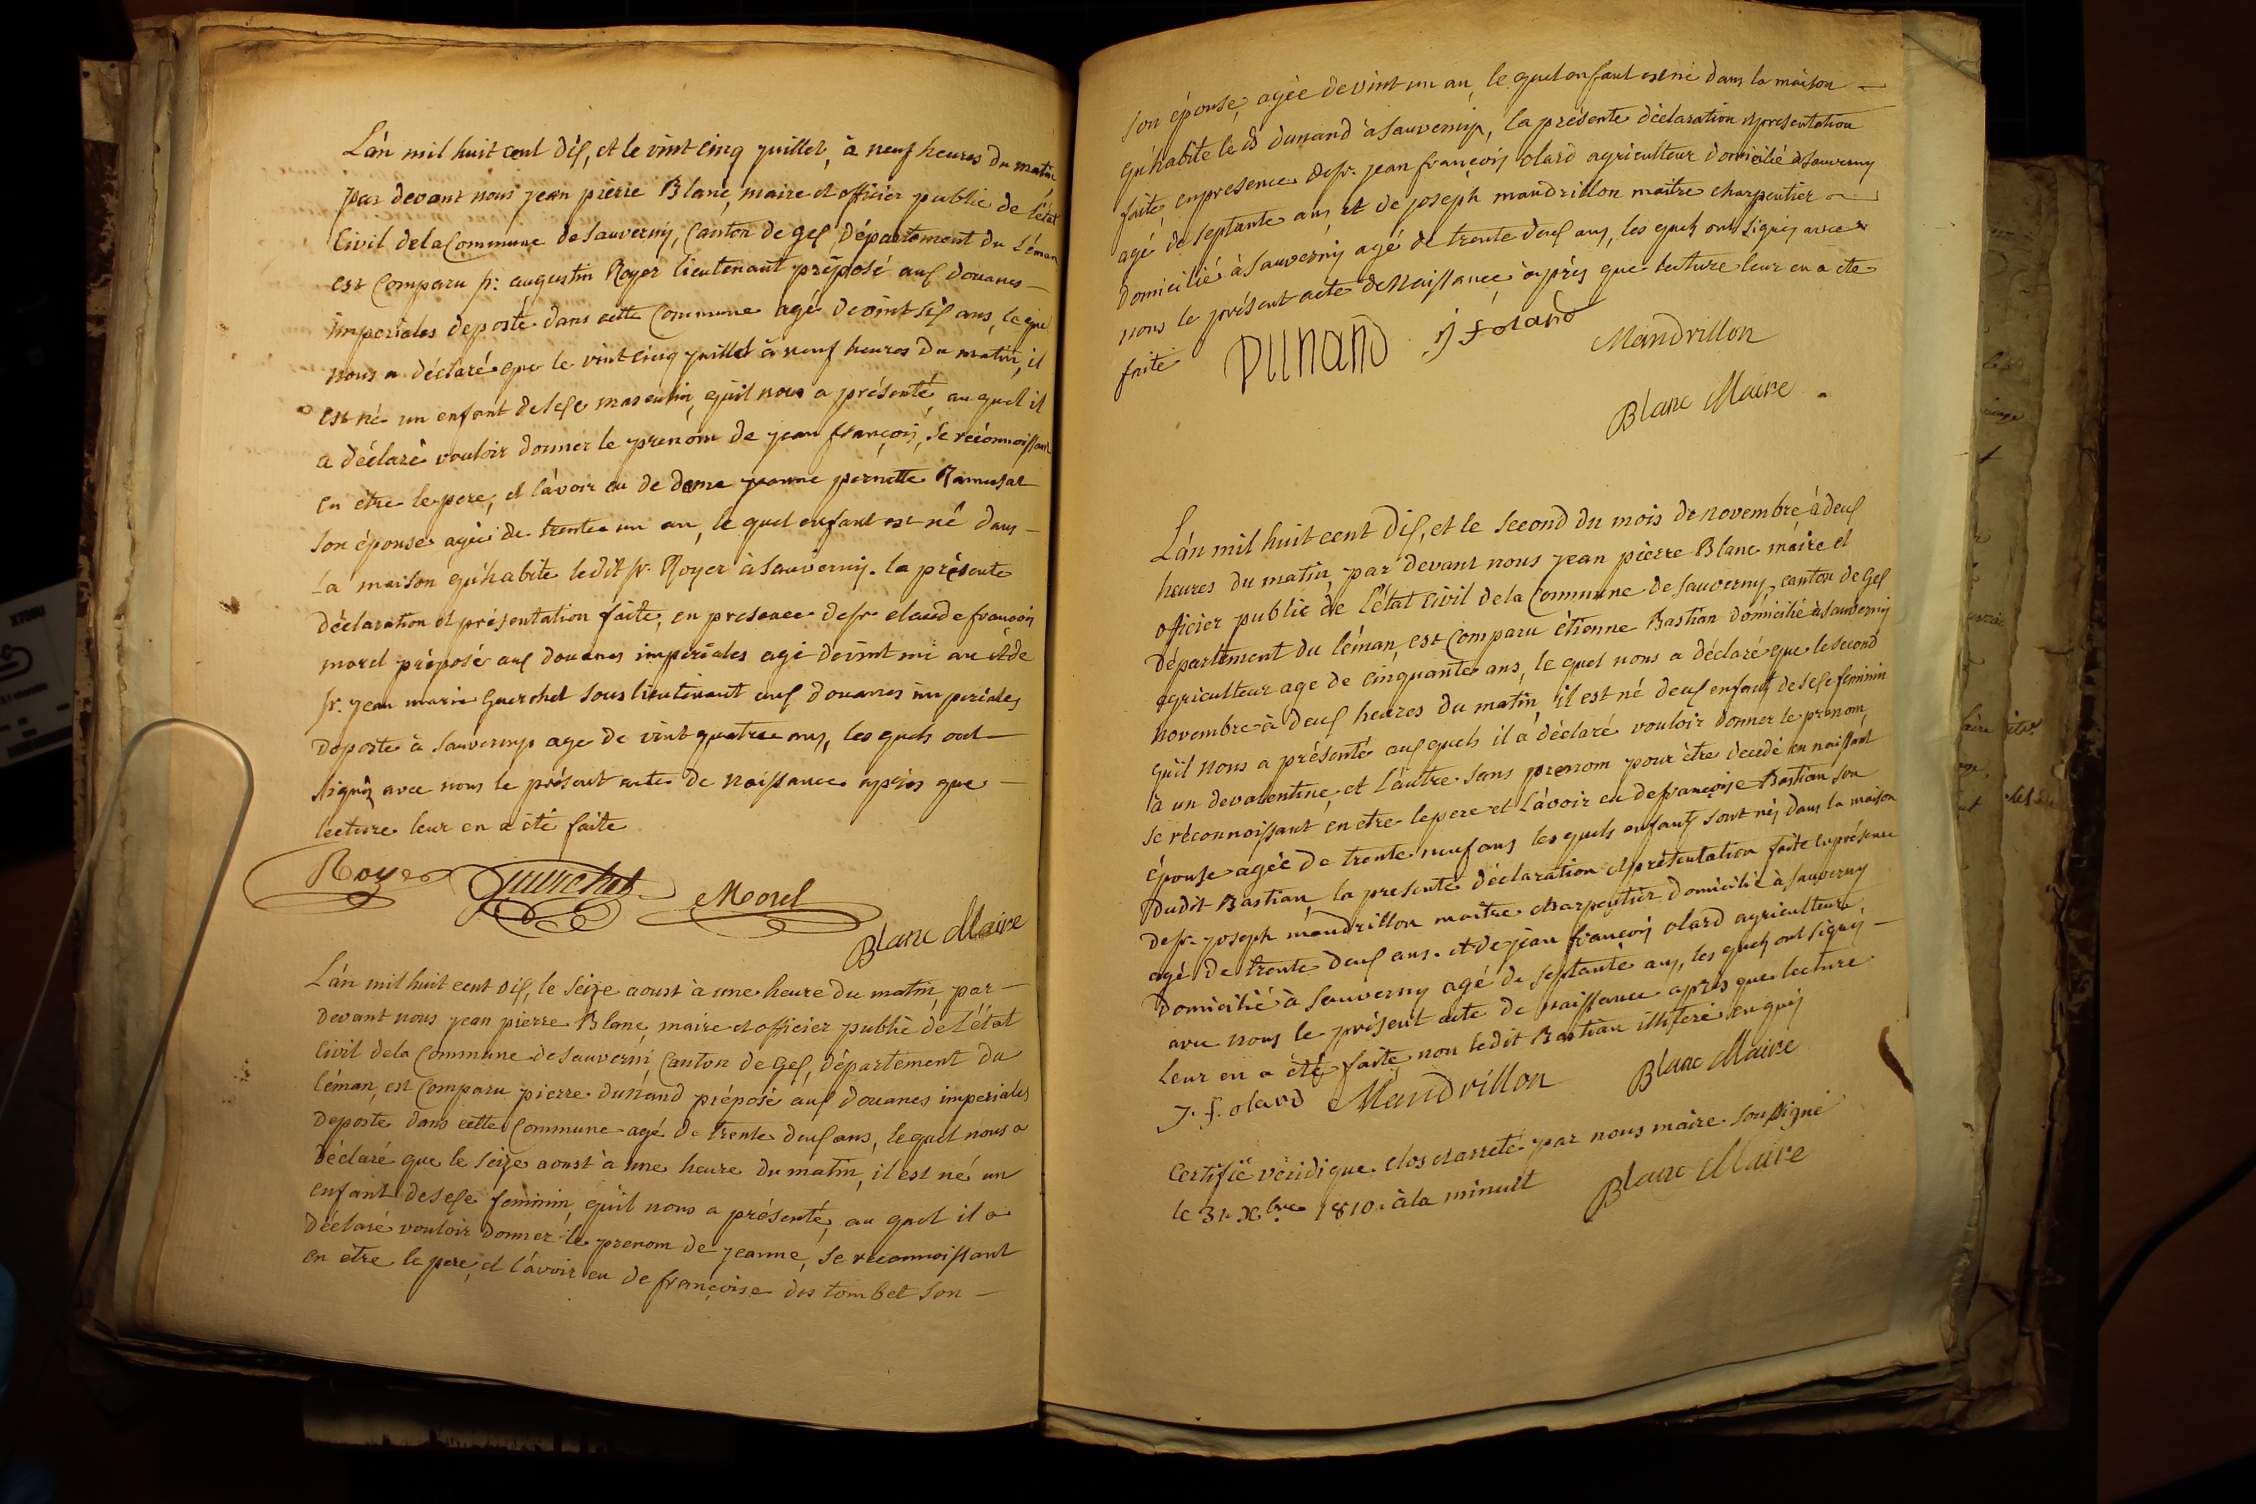 L'án mil huit cent dix, et le vint cinq juillet, à neuf heures du matin
par devant nous jean pierre Blanc, maire et officier public de l'état
Civil de la Commune de Sauverny, Canton de gex, Département du Léman
est Comparu sr. augustin Royer lieutenant préposé aux douanes —
impériales deposté dans cette Commune agé de vint six ans, le quel
nous a déclaré que le vint cinq juillet à neuf heures du matin, il
est né un enfant de sexe masculin, qu'il nous a présenté, au quel il
a déclaré vouloir donner le prenom de jean françois, se réconnoissant
en être le pere, et l'avoir eu de dame jeanne pernette Ramusat
son épouse agée de trente un an, le quel enfant est né dans —
la maison qu'habite ledit sr. Royer à Sauverny. la présente
déclaration et présentation faite, en presence de sr claude françois
morel préposé aux douanes impériales agé de vint un an et de
sr. jean marie Guerchet sous lieutenant aux douanes impériales
deposté à Sauverny age de vint quatre ans, les quels ont —
signés avec nous le présent acte de naissance après que —
lecture leur en a été faite
Royer Guerchet Morel
Blanc Maire
L'án mil huit cent dix, le seize aoust à une heure du matin, par —
devant nous jean pierre Blanc, maire et officier public de l'état
Civil de la Commune de Sauverni, Canton de Gex, département du
Léman, est Comparu pierre dunand préposé aux douanes imperiales
deposté dans cette Commune agé de trente deux ans, lequel nous a
déclaré que le seize aoust à une heure du matin, il est né un
enfant de sexe feminin, qu'il nous a présenté, au quel il a
déclaré vouloir donner le prenom de jeanne, se réconnoissant
en être le pere, et l'avoir eu de françoise des tombet son —
son épouse, agée de vint un an, le quel enfant est né dans la maison —
qu'habite le dt dunand à Sauverny, la présente déclaration et présentation
faite en presence de sr. jean françois olard agriculteur domicilié à Sauverny
agé de septante ans, et de joseph mandrillon maître charpentier —
domicilié à Sauverny agé de trente deux ans, les quels ont signés avec
nous le présent acte de Naissance après que lecture leur en a été
faite
DUNAND j f olard Mandrillon
Blanc Maire
L'án mil huit cent dix, et le second du mois de novembre à deux
heures du matin, par devant nous jean pierre Blanc maire et
officier public de l'état Civil de la Commune de Sauverny, canton de Gex
Département du léman, est Comparu étienne Bastian domicilié à Sauverny
agriculteur age de cinquante ans, le quel nous a déclaré que le second
novembre à deux heures du matin il est né deux enfants de sexe feminin
qu'il nous a présenté aux quels il a déclaré vouloir donner le prenom
à un de valentine, et l'autre sans prenom pour être decedé en naissant
se réconnoissant en etre le pere et l'avoir eu de françoise Bastian son
épouse agée de trente neuf ans les quels enfants sont nés dans la maison
dudit Bastian, la presente déclaration et présentation faite en présence
de sr. joseph mandrillon maitre charpentier domicilié à Sauverny
agé de trente deux ans. et de jean françois olard agriculteur
domicilié à Sauverny agé de septante ans, les quels ont signés —
avec nous le présent acte de naissance après que lecture
leur en a été faite, non ledit Bastian illiteré enquis
J. f. olard Mandrillon Blanc Maire
Certifié véridique. clos et arreté par nous maire soussigné
le 31. Xbre 1810. à la minuit Blanc Maire